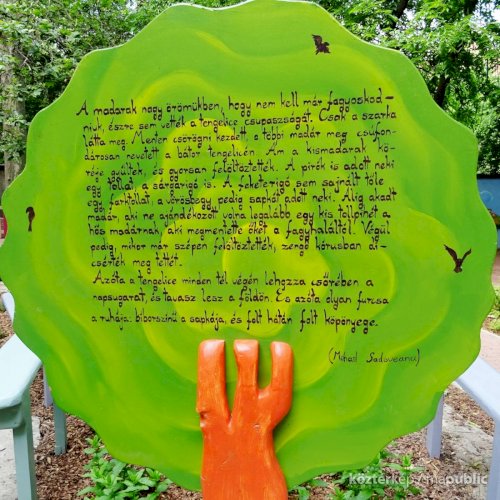 A madarak nagy örömükben, hogy nem kell már fagyoskod-
niuk, észre sem vették a tengelice csupaszságát. Csak a szarka
látta meg. Menten csörögni kezdett, a többi madár meg csúfon-
dárosan nevetett a bátor tengelicén. Ám a kismadarak kö-
réje gyűltek, és gyorsan felöltöztették. A pirók is adott neki
egy tollat, a sárgarigó is. A feketerigó sem sajnált tőle
egy farktollat, a vörösbegy pedig sapkát adott neki. Alig akadt
madár, aki ne ajándékozott volna legalább egy kis tollpihét a
hős madárnak, aki megmentette őket a fagyhaláltól. Végül
pedig, mikor már szépen felöltöztették, zengő kórusban di-
csérték meg tettét.
Azóta a tengelice minden tél végén lehozza csőrében a
napsugarat, és tavasz lesz a földön. És azóta olyan furcsa
a ruhája: bíborszínű a sapkája, és folt hátán folt köpönyege.
(Mihail Sadoveanu)
köztérkép / mapublic